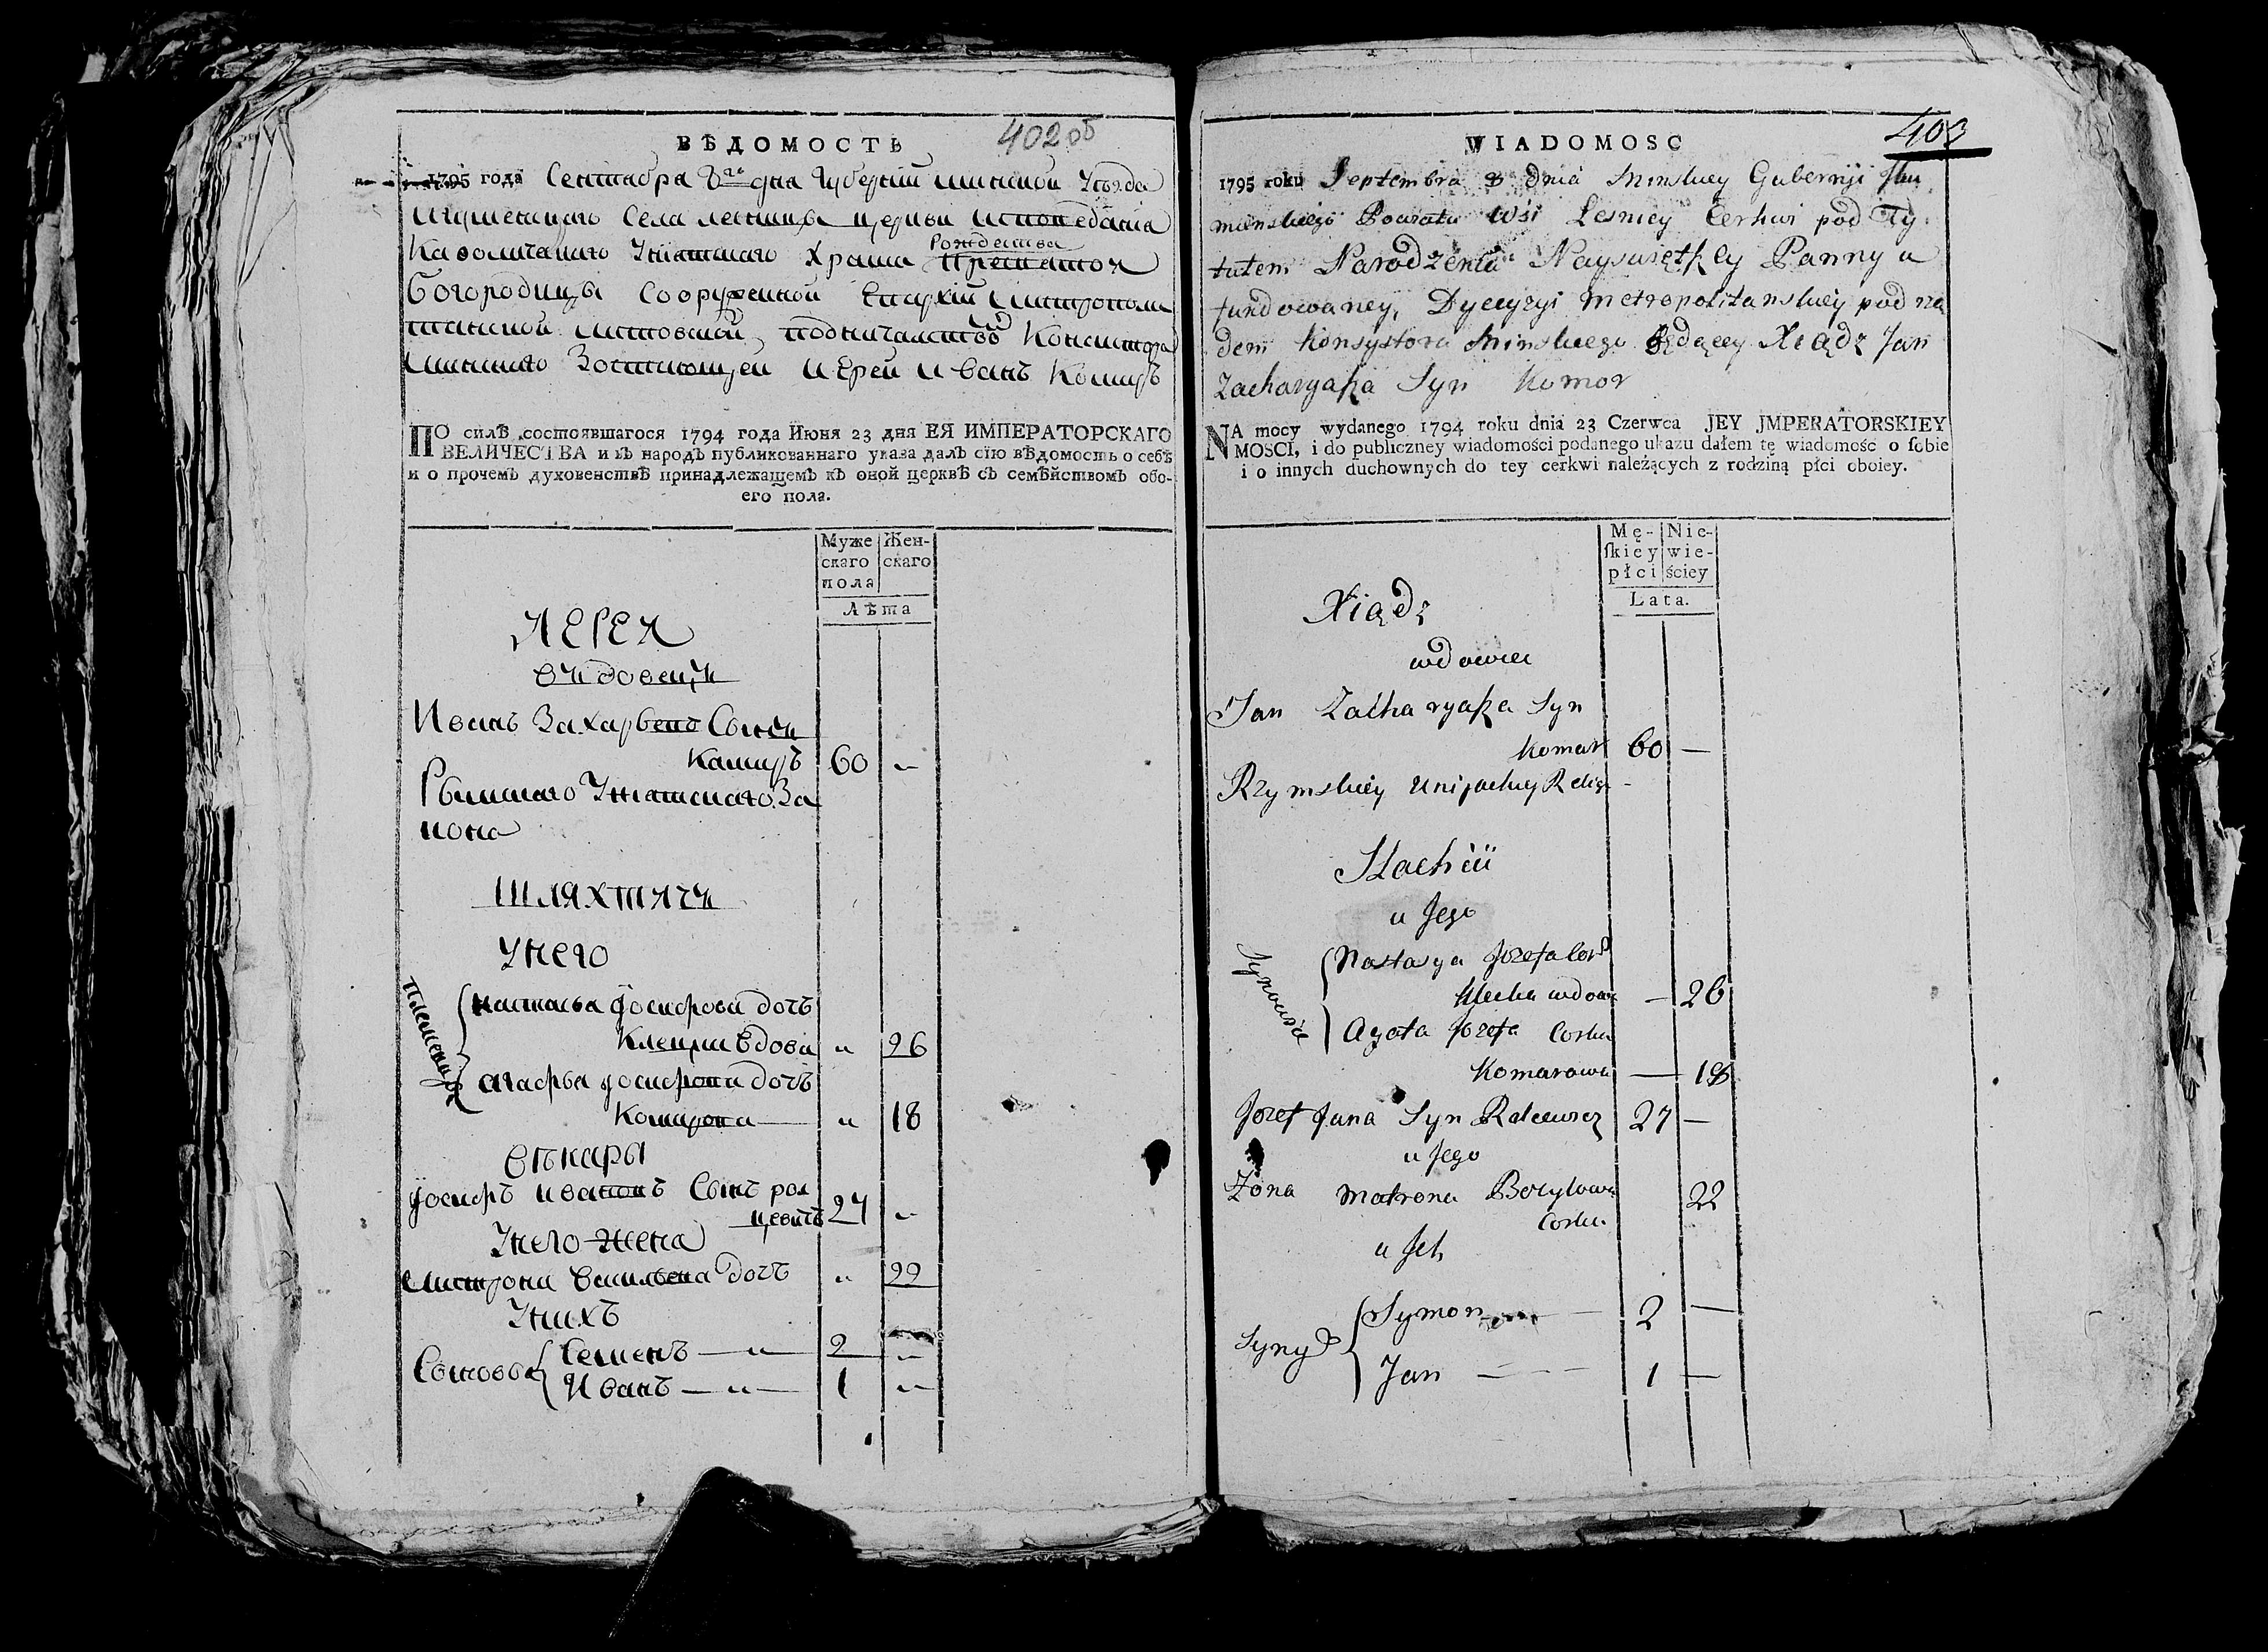 ВѢДОМОСТЬ
402 об
1795 года Сентабра 8го дня Губернiи Минской Уѣзда
Игуменскаго Села Лешницы церкви Исповеданiя
Кафолическаго Унiатскаго Храма Рождества
Богородицы Сооруженной Епархiи Митрополи
танской Литовской, подначалство Консистора
Минскаго Состоющей Иерей Иванъ Комаръ
ПО силѣ состоявшагося 1794 года Июня 23 дня ЕЯ ИМПЕРАТОРСКАГО
ВЕЛИЧЕСТВА и въ народъ публикованнаго указа далъ сїю вѣдомость о себѣ
и о прочемъ духовенствѣ принадлежащемъ къ оной церквѣ съ семѣйствомъ обо-
его пола.
Муже Жен-
скаго скаго
пола
Лѣта
ИЕРЕЯ
Иванъ Захарвевъ Сынъ
Камаръ 60 —
Рымскаго Унiатскаго За
кона
ШЛЯХТИЧИ
У него
Настасья Йосифова дочъ
Клецка вдова " 26
Агафья Йосифова дочъ
Комарова — " 18
Викары
Йосифъ Ивановъ Сынъ рал
цевичъ 27 —
У него жена
Матрона Васильева дочъ " 22
У нихъ
Сыновья
Семенъ — " — 2 —
Иванъ — " — 1 —
WIADOMOSC
403
1795 roku Septembra 8 dnia Minskiey Gubernji Jhu
menskiego Powiatu Wsi Lesnicy Cerkwi pod Ty
tułem Narodzenia Nayswiętszey Panny u
fundowaney, Dyecyzyi Metropolitanskiey pod rzą
dem Konsystora Minskiego Będący Xiądz Jan
Zacharyasza Syn Komor
NA mocy wydanego 1794 roku dnia 23 Czerwca JEY JMPERATORSKIEY
MOSCI, i do publiczney wiadomości podanego ukazu dałem tę wiadomośc o ſobie
i o innych duchownych do tey cerkwi należących z rodziną płci oboiey.
Mę- Nie-
ſkiey wie-
płci ściey
Lata.
Xiądz
wdowiec
Jan Zacharyasza Syn
Komar 60 —
Rzymskiey Unijackiey Relig -
Szlachcic
u Jego
Nastasya Jozefa Cor
Klecka wdowa — 26
Agata Jozefa Corka
Komarowa — 18
Jozef Jana Syn Ralcewicz 27 —
u Jego
Żona Matrona Bazylowa 22
Corka
u Jch
Syny
Symon — 2 —
Jan — 1 —